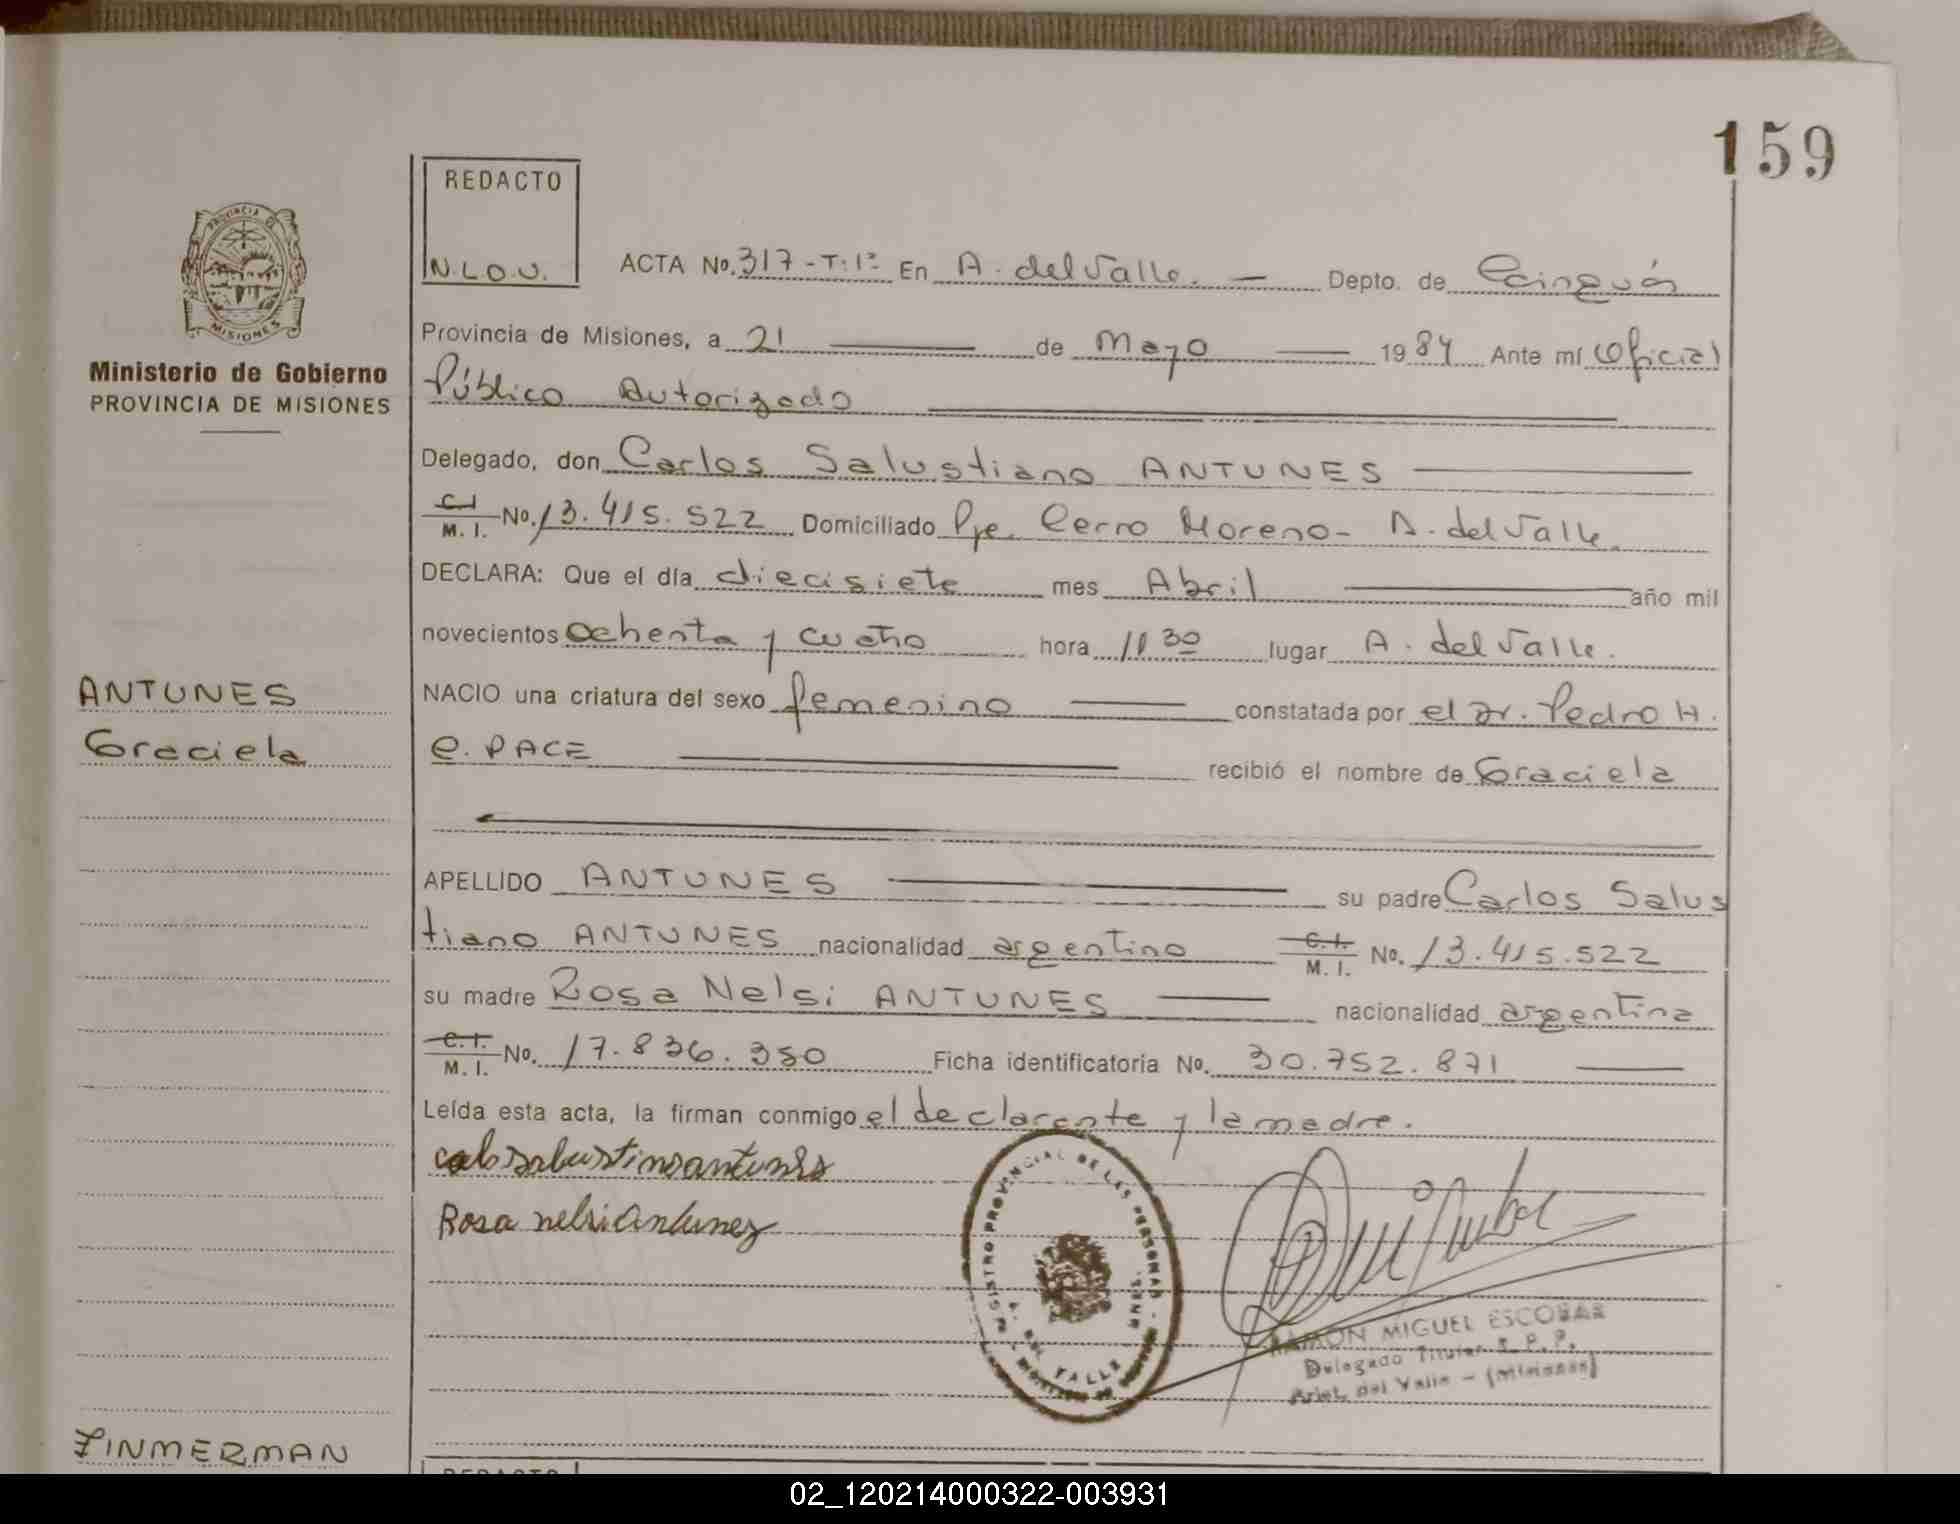 159
REDACTO
N.L.O.V.
PROVINCIA DE
MISIONES
Ministerio de Gobierno
PROVINCIA DE MISIONES
ACTA No. 317-T:1º En A. del Valle. Depto. de Cainguás
Provincia de Misiones, a 21 de Mayo 1984 Ante mí (Oficial
Público Autorizado
Delegado, don Carlos Salustiano ANTUNES
C.I. M. I. No. 13.415.522 Domiciliado Pje. Cerro Moreno - A. del Valle.
DECLARA: Que el día diecisiete mes Abril año mil
novecientos ochenta y cuatro hora 11 30 lugar A. del Valle.
NACIO una criatura del sexo femenino constatada por el Dr. Pedro H.
E. PACE recibió el nombre de Graciela
ANTUNES
Graciela
APELLIDO ANTUNES su padre Carlos Salus
tiano ANTUNES nacionalidad argentino C.I. M. I. No. 13.415.522
su madre Rosa Nelsi ANTUNES nacionalidad argentina
C.I. M. I. No. 17.836.350 Ficha identificatoria No. 30.752.871
Leída esta acta, la firman conmigo el declarante y la madre.
Rosa nelsi Antunez
REGISTRO PROVINCIAL DE LAS PERSONAS
DEL VALLE
RAMON MIGUEL ESCOBAR
Delegado Titular R. P. P.
Arist. del Valle - (Misiones)
ZINMERMAN
REDACTO
02_120214000322-003931